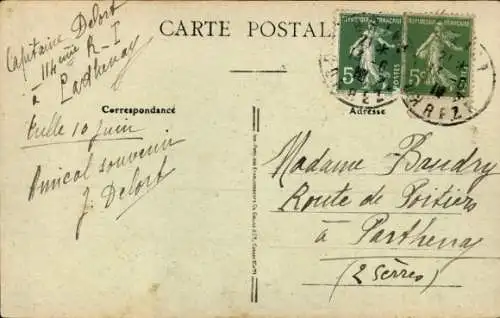 CARTE POSTALE
Capitaine Delort
114ème R-I
à Parthenay
Correspondance
Tulle 10 Juin
Amical souvenir
J. Delort
Adresse
Madame Baudry
Route de Poitiers
à Parthenay
(2 Sèvres)
5c
POSTES
5c
RREZE